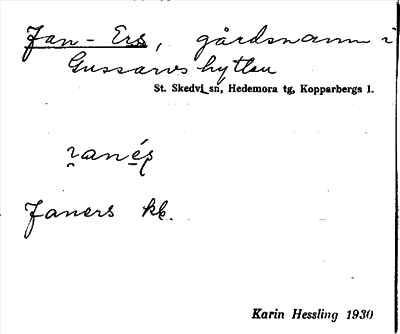 Jan-Ers, gårdsnamn i
Gussarvshyttan
St. Skedvi sn, Hedemora tg, Kopparbergs l.
Janers kb.
Karin Hessling 1930